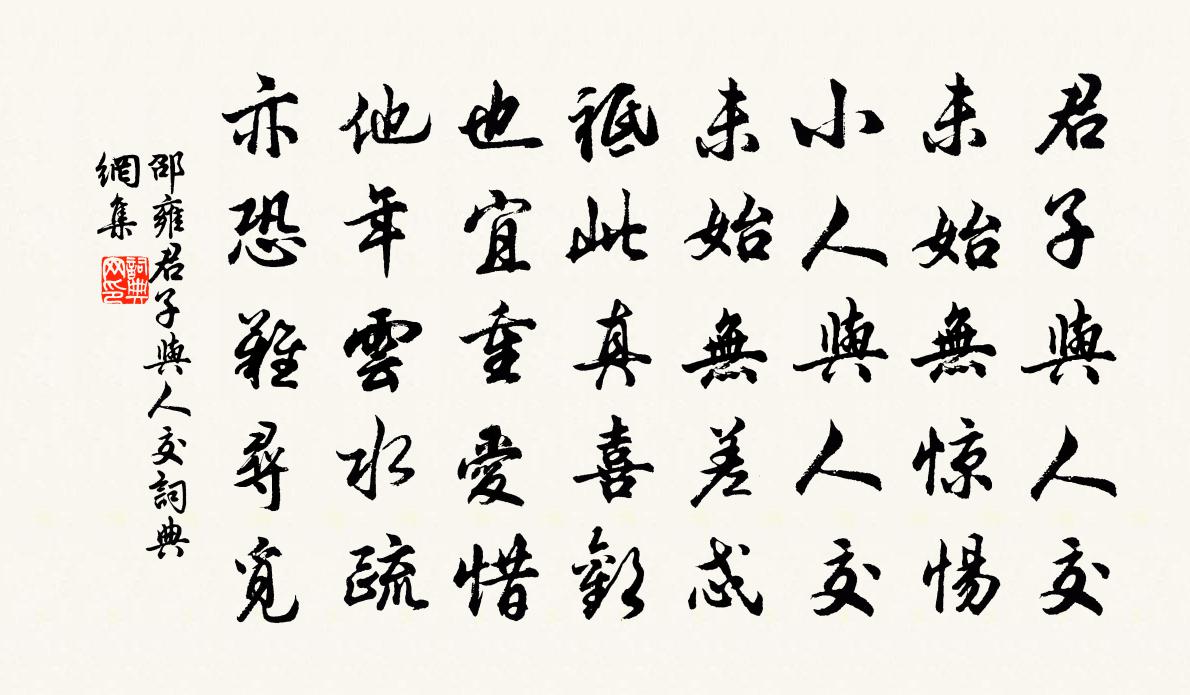 君子與人交
未始無惊惕
小人與人交
未始無差忒
祗此真喜歡
也宜重愛惜
他年雲水疏
亦恐難尋覓
邵雍君子與人交詞典
網集
詞典
网印